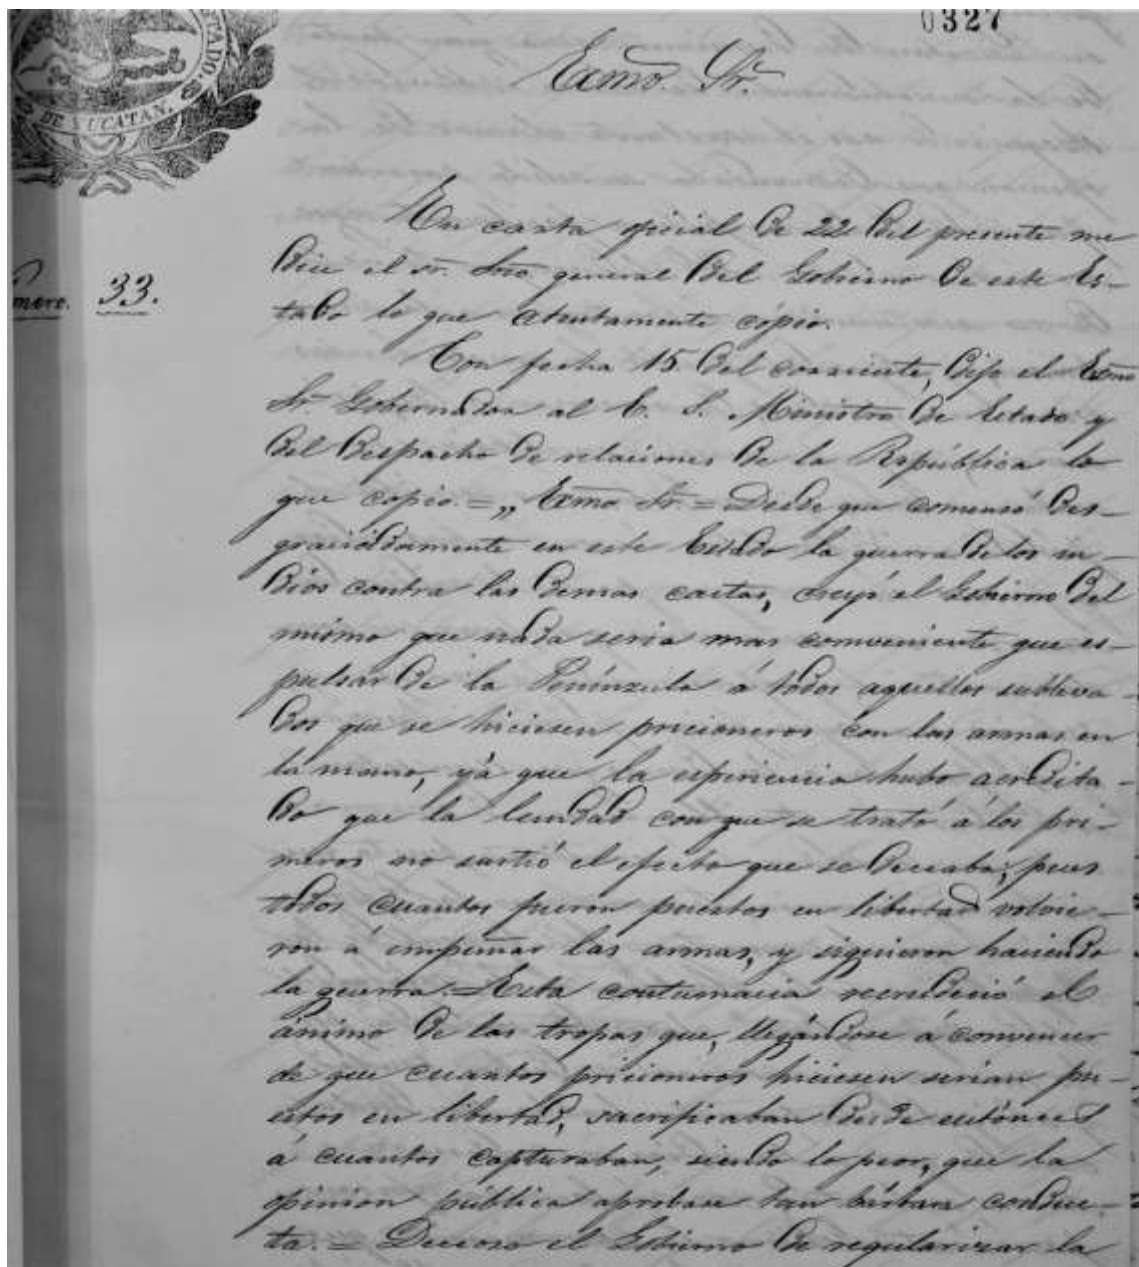 0327
ESTADO
DE YUCATAN.
Exmo. Sr.
mero. 33.
En carta oficial de 22 del presente me
dice el Sr. Srio. general del Gobierno de este Es-
tado lo que atentamente cópio.
Con fecha 15 del corriente, dijo el Exmo
Sr. Gobernador al E. S. Ministro de Estado y
del Despacho de relaciones de la República lo
que copio. = „ Exmo Sr. = Desde que comensó des-
graciadamente en este Estado la guerra de los in-
dios contra las demas castas, creyó el Gobierno del
mismo que nada seria mas conveniente que es-
pulsar de la Península á todos aquellos subleva-
dos que se hiciesen pricioneros con las armas en
la mano, yá que la esperiencia hubo acredita-
do que la lenidad con que se trató á los pri-
meros no surtió el efecto que se deceaba; pues
todos cuantos fueron puestos en libertad volvie-
ron á empuñar las armas, y siguieron haciendo
la guerra. = Esta contumacia recrudeció el
ánimo de las tropas que, llegándose á convencer
de que cuantos pricioneros hiciesen serian pu-
estos en libertad, sacrificaban desde entónces
á cuantos capturaban, siendo lo peor, que la
opinion pública aprobase tan bárbara conduc-
ta. = Deceoso el Gobierno de regularizar la